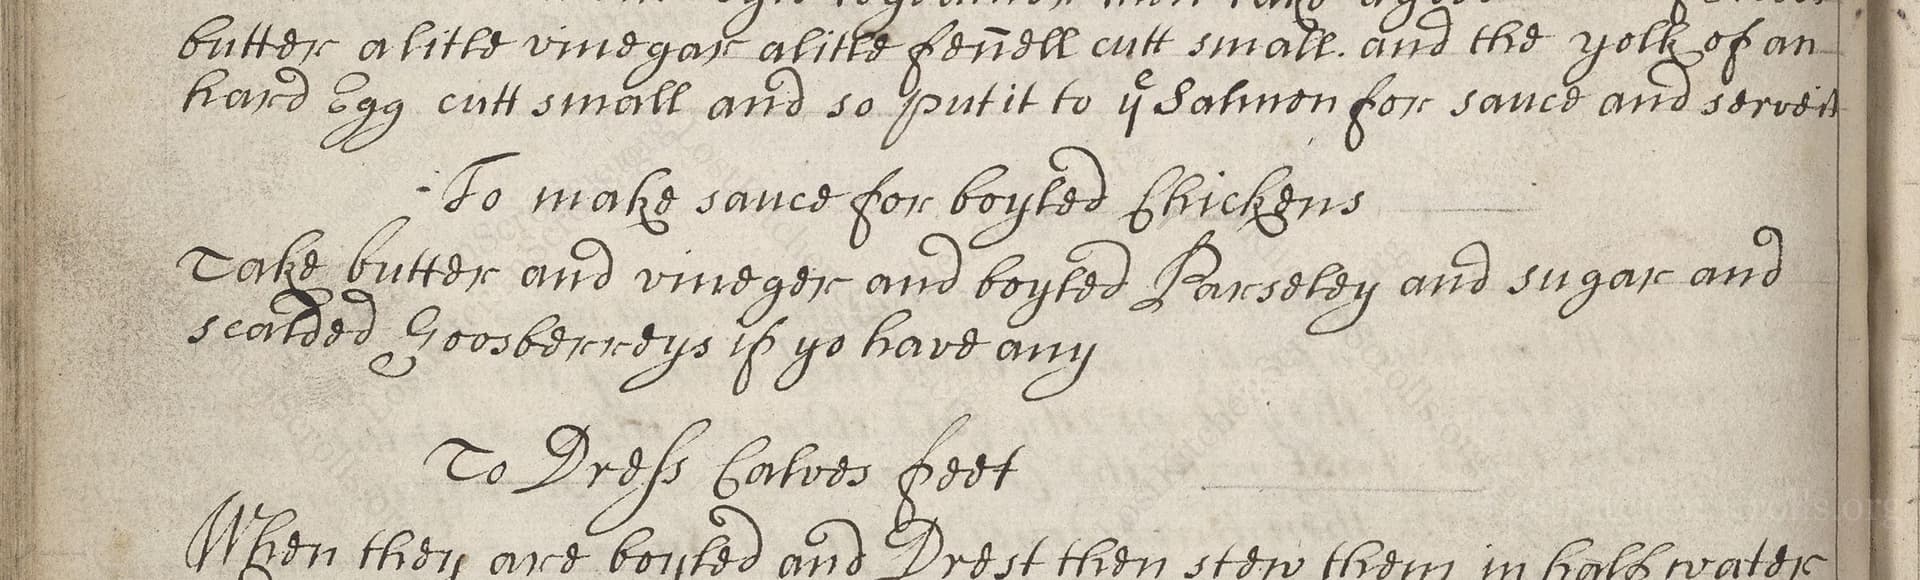 butter a litle vinegar a litle fen̄ell cutt small. and the yolk of an
hard Egg cutt small and so put it to yͤ Salmon for sauce and serve it
To make sauce for boyled Chickens
Take butter and vineger and boyled Parseley and sugar and
scalded Goosberreys if yo have any
To Dress Calves feet
When they are boyled and Drest then stew them in half water